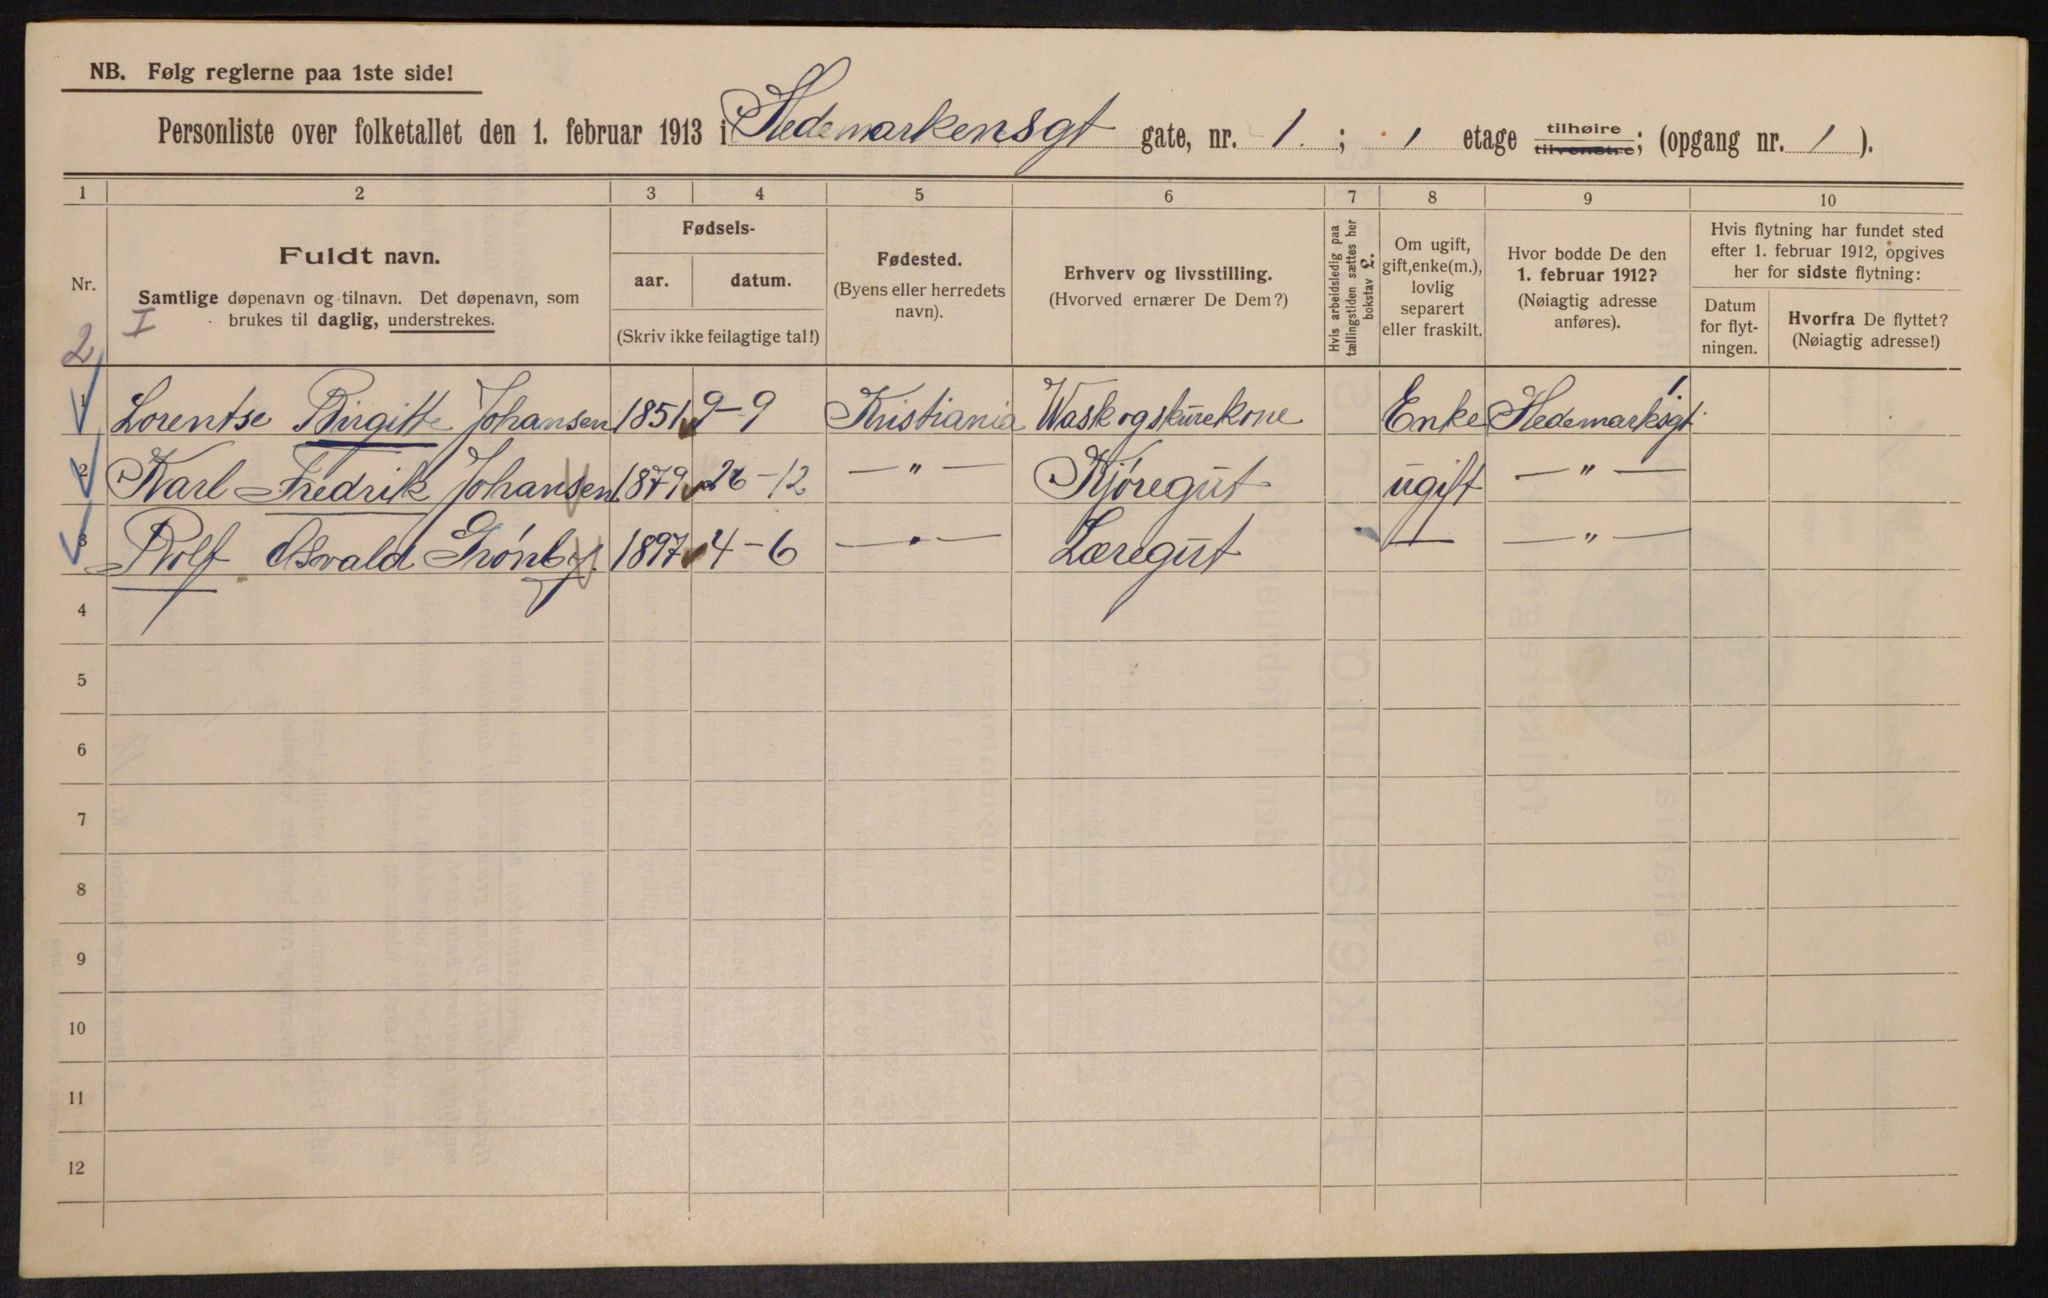 NB. Følg reglerne paa 1ste side!
Personliste over folketallet den 1. februar 1913 i Hedemarkensgt gate, nr. 1. ; 1 etage tilhøire tilvenstre; (opgang nr. 1 ).
1 2 3 4 5 6 7 8 9 10
Nr.
Fuldt navn.
Samtlige døpenavn og tilnavn. Det døpenavn, som
brukes til daglig, understrekes.
Fødsels-
aar. datum.
(Skriv ikke feilagtige tal!)
Fødested.
(Byens eller herredets
navn).
Erhverv og livsstilling.
(Hvorved ernærer De Dem?)
Hvis arbeidsledig paa
tællingstiden sættes her
bokstav L.
Om ugift,
gift, enke(m.),
lovlig
separert
eller fraskilt.
Hvor bodde De den
1. februar 1912?
(Nøiagtig adresse
anføres).
Hvis flytning har fundet sted
efter 1. februar 1912, opgives
her for sidste flytning:
Datum
for flyt-
ningen.
Hvorfra De flyttet?
(Nøiagtig adresse!)
2 I
1 Lorentse Birgitte Johansen 1851 9-9 Kristiania Waskogskurekone Enke Hedemarksgt 1
2 Karl Fredrik Johansen 1879 26-12 —"— Kjøregut ugift —"—
3 Rolf Osvald Grønby. 1897 4-6 —"— Læregut — —"—
4
5
6
7
8
9
10
11
12